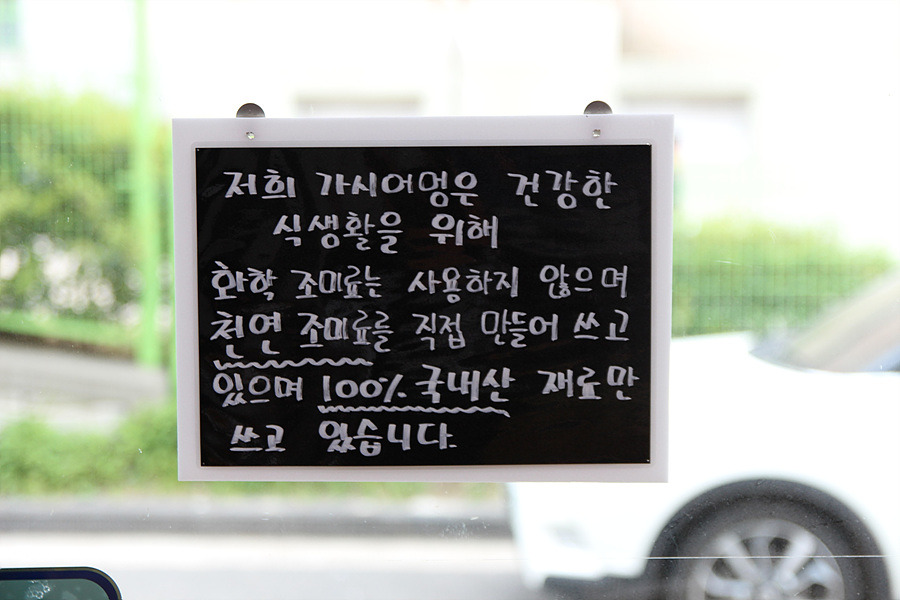 저희 가시어멍은 건강한
식생활을 위해
화학 조미료는 사용하지 않으며
천연 조미료를 직접 만들어 쓰고
있으며 100% 국내산 재료만
쓰고 있습니다.